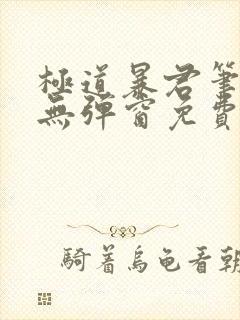 極道暴君筆
無彈窗免費
騎着烏龜看朝